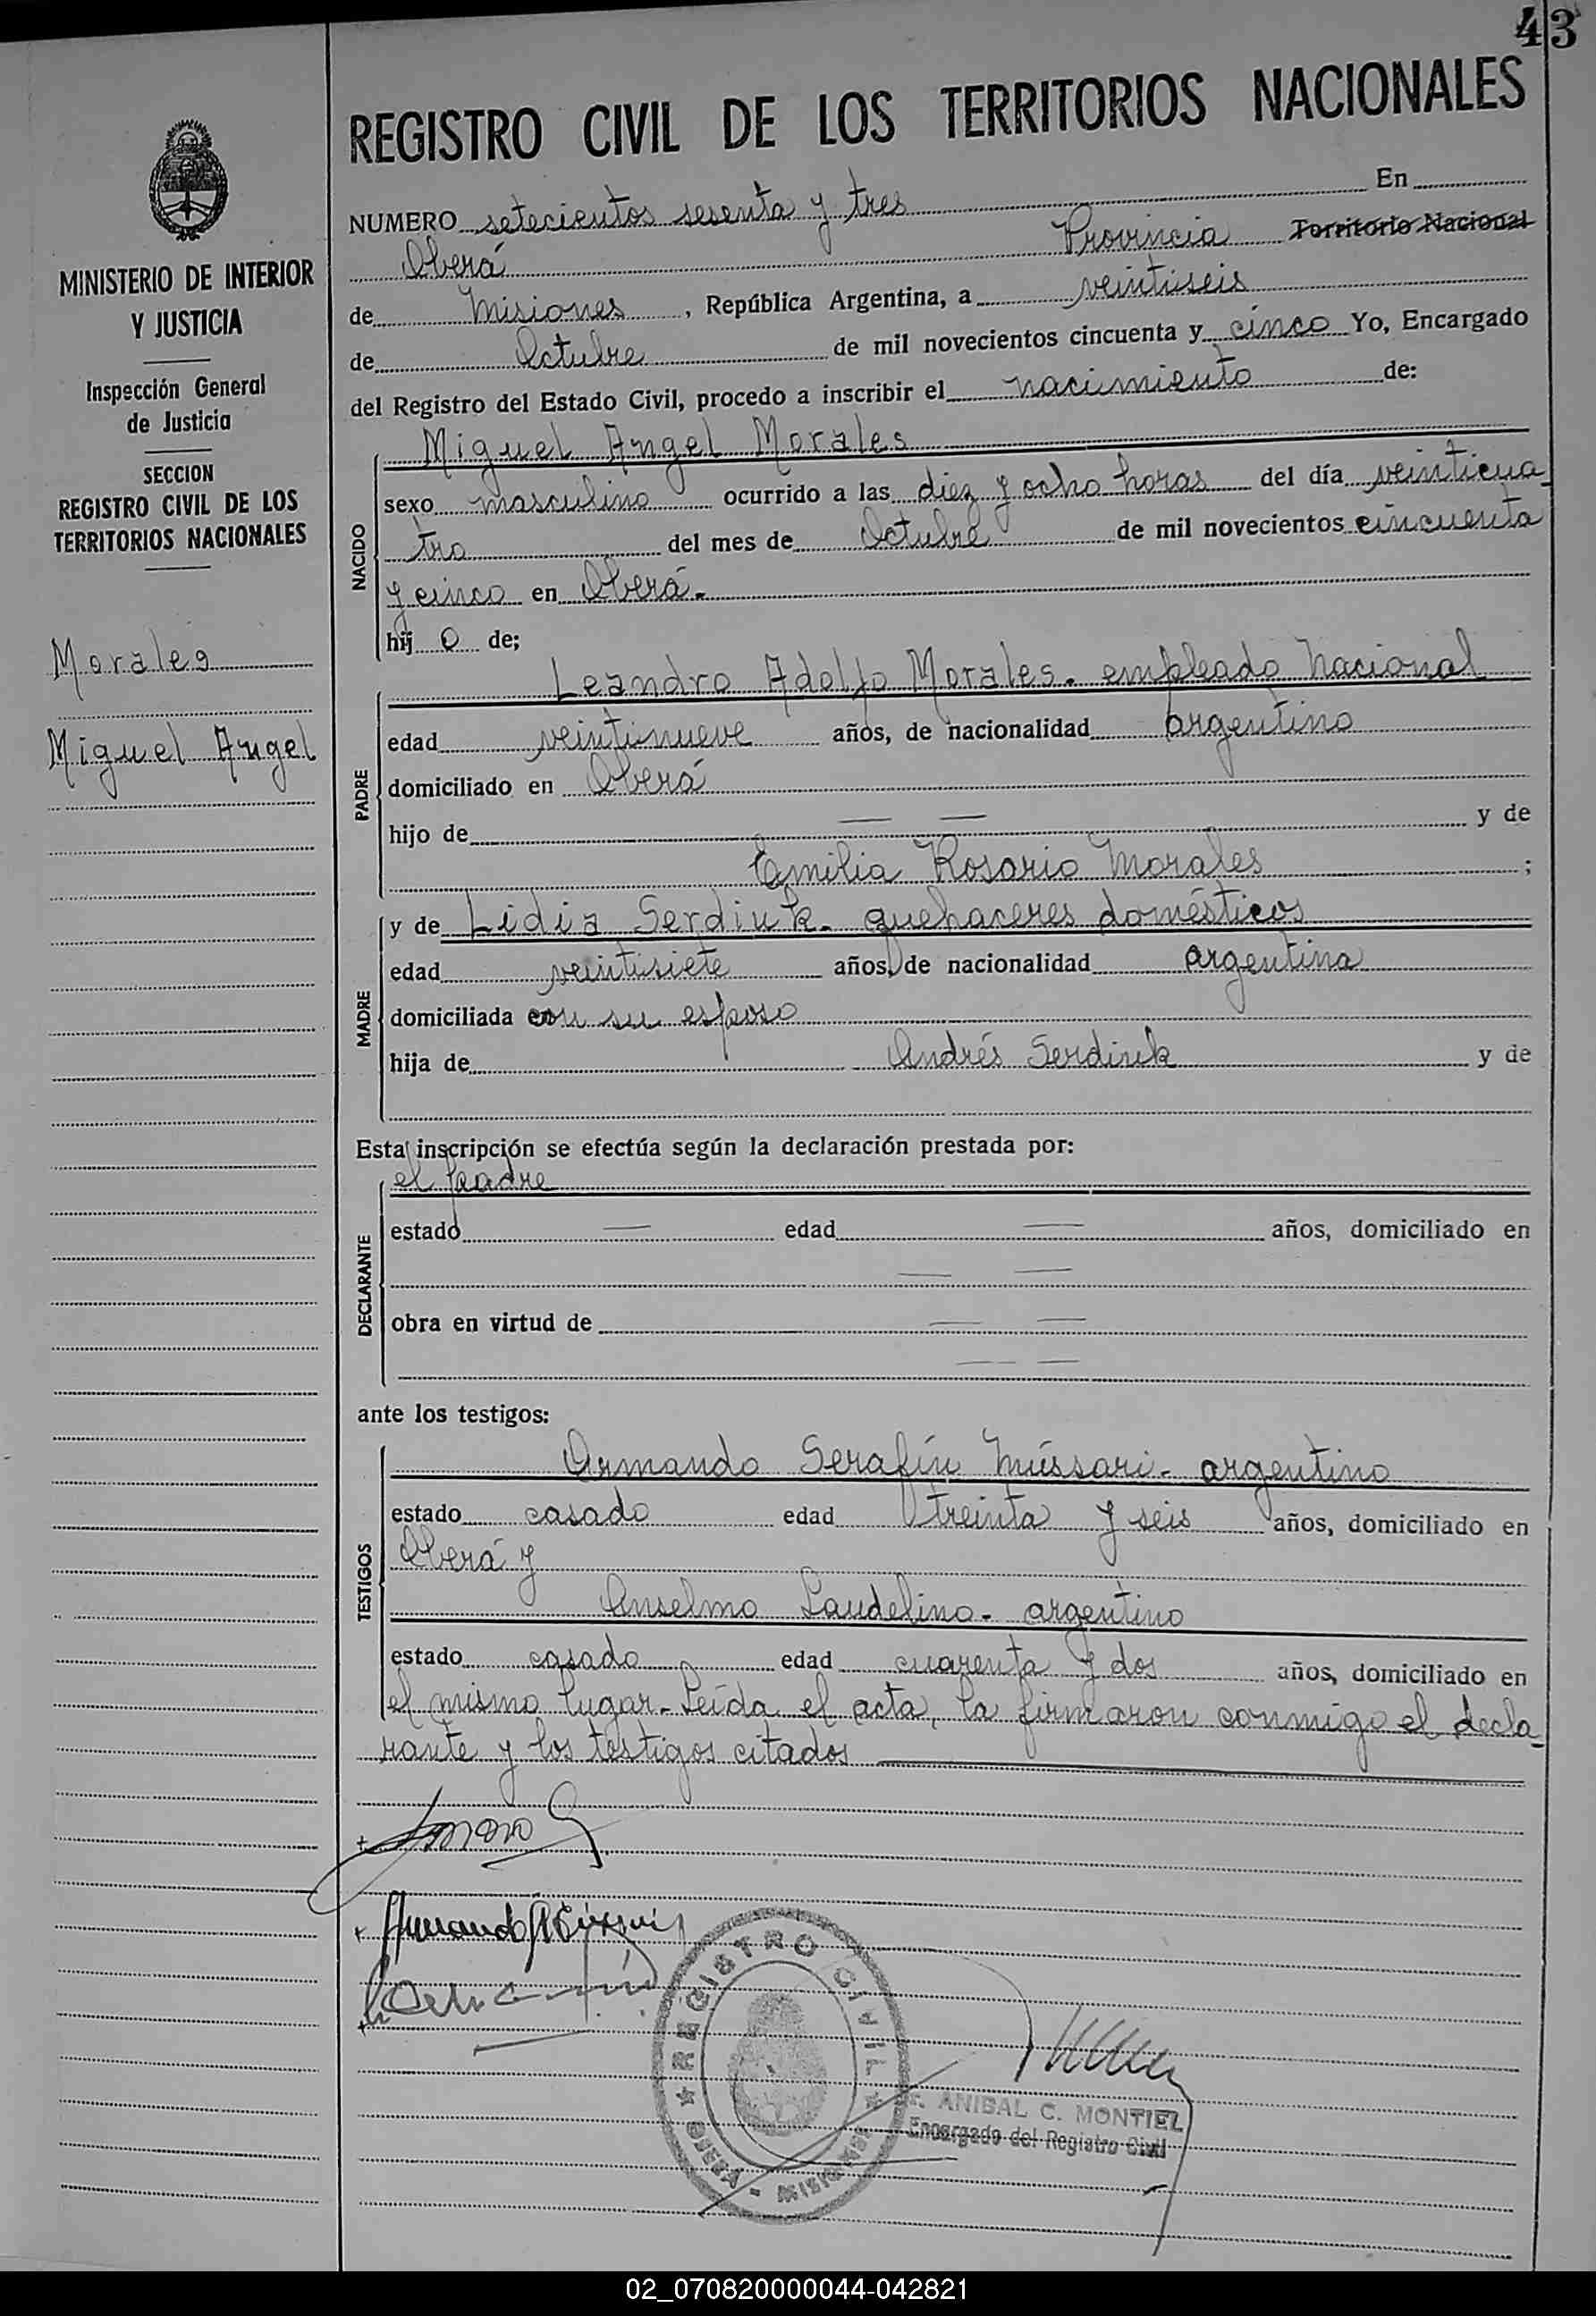 43
REGISTRO CIVIL DE LOS TERRITORIOS NACIONALES
MINISTERIO DE INTERIOR
Y JUSTICIA
Inspección General
de Justicia
SECCION
REGISTRO CIVIL DE LOS
TERRITORIOS NACIONALES
Morales
Miguel Angel
NUMERO setecientos sesenta y tres En
Oberá Provincia Territorio Nacional
de Misiones, República Argentina, a veintiseis
de Octubre de mil novecientos cincuenta y cinco Yo, Encargado
del Registro del Estado Civil, procedo a inscribir el nacimiento de:
NACIDO
Miguel Angel Morales
sexo masculino ocurrido a las diez y ocho horas del día veinticua
tro del mes de Octubre de mil novecientos cincuenta
y cinco en Oberá.
hij o de;
PADRE
Leandro Adolfo Morales. empleado Nacional
edad veintinueve años, de nacionalidad argentino
domiciliado en Oberá
hijo de — — y de
Emilia Rosario Morales ;
MADRE
y de Lidia Serdiuk. quehaceres domésticos
edad veintisiete años, de nacionalidad argentina
domiciliada con su esposo
hija de Andrés Serdiuk y de
Esta inscripción se efectúa según la declaración prestada por:
DECLARANTE
el padre
estado — edad — años, domiciliado en
— —
obra en virtud de — —
— —
ante los testigos:
TESTIGOS
Armando Serafín Mussari - argentino
estado casado edad treinta y seis años, domiciliado en
Oberá y
Anselmo Laudelino - argentino
estado casado edad cuarenta y dos años, domiciliado en
el mismo lugar - Leída el acta, la firmaron conmigo el decla
rante y los testigos citados
REGISTRO CIVIL
OBERA - MISIONES
F. ANIBAL C. MONTIEL
Encargado del Registro Civil
02_070820000044-042821